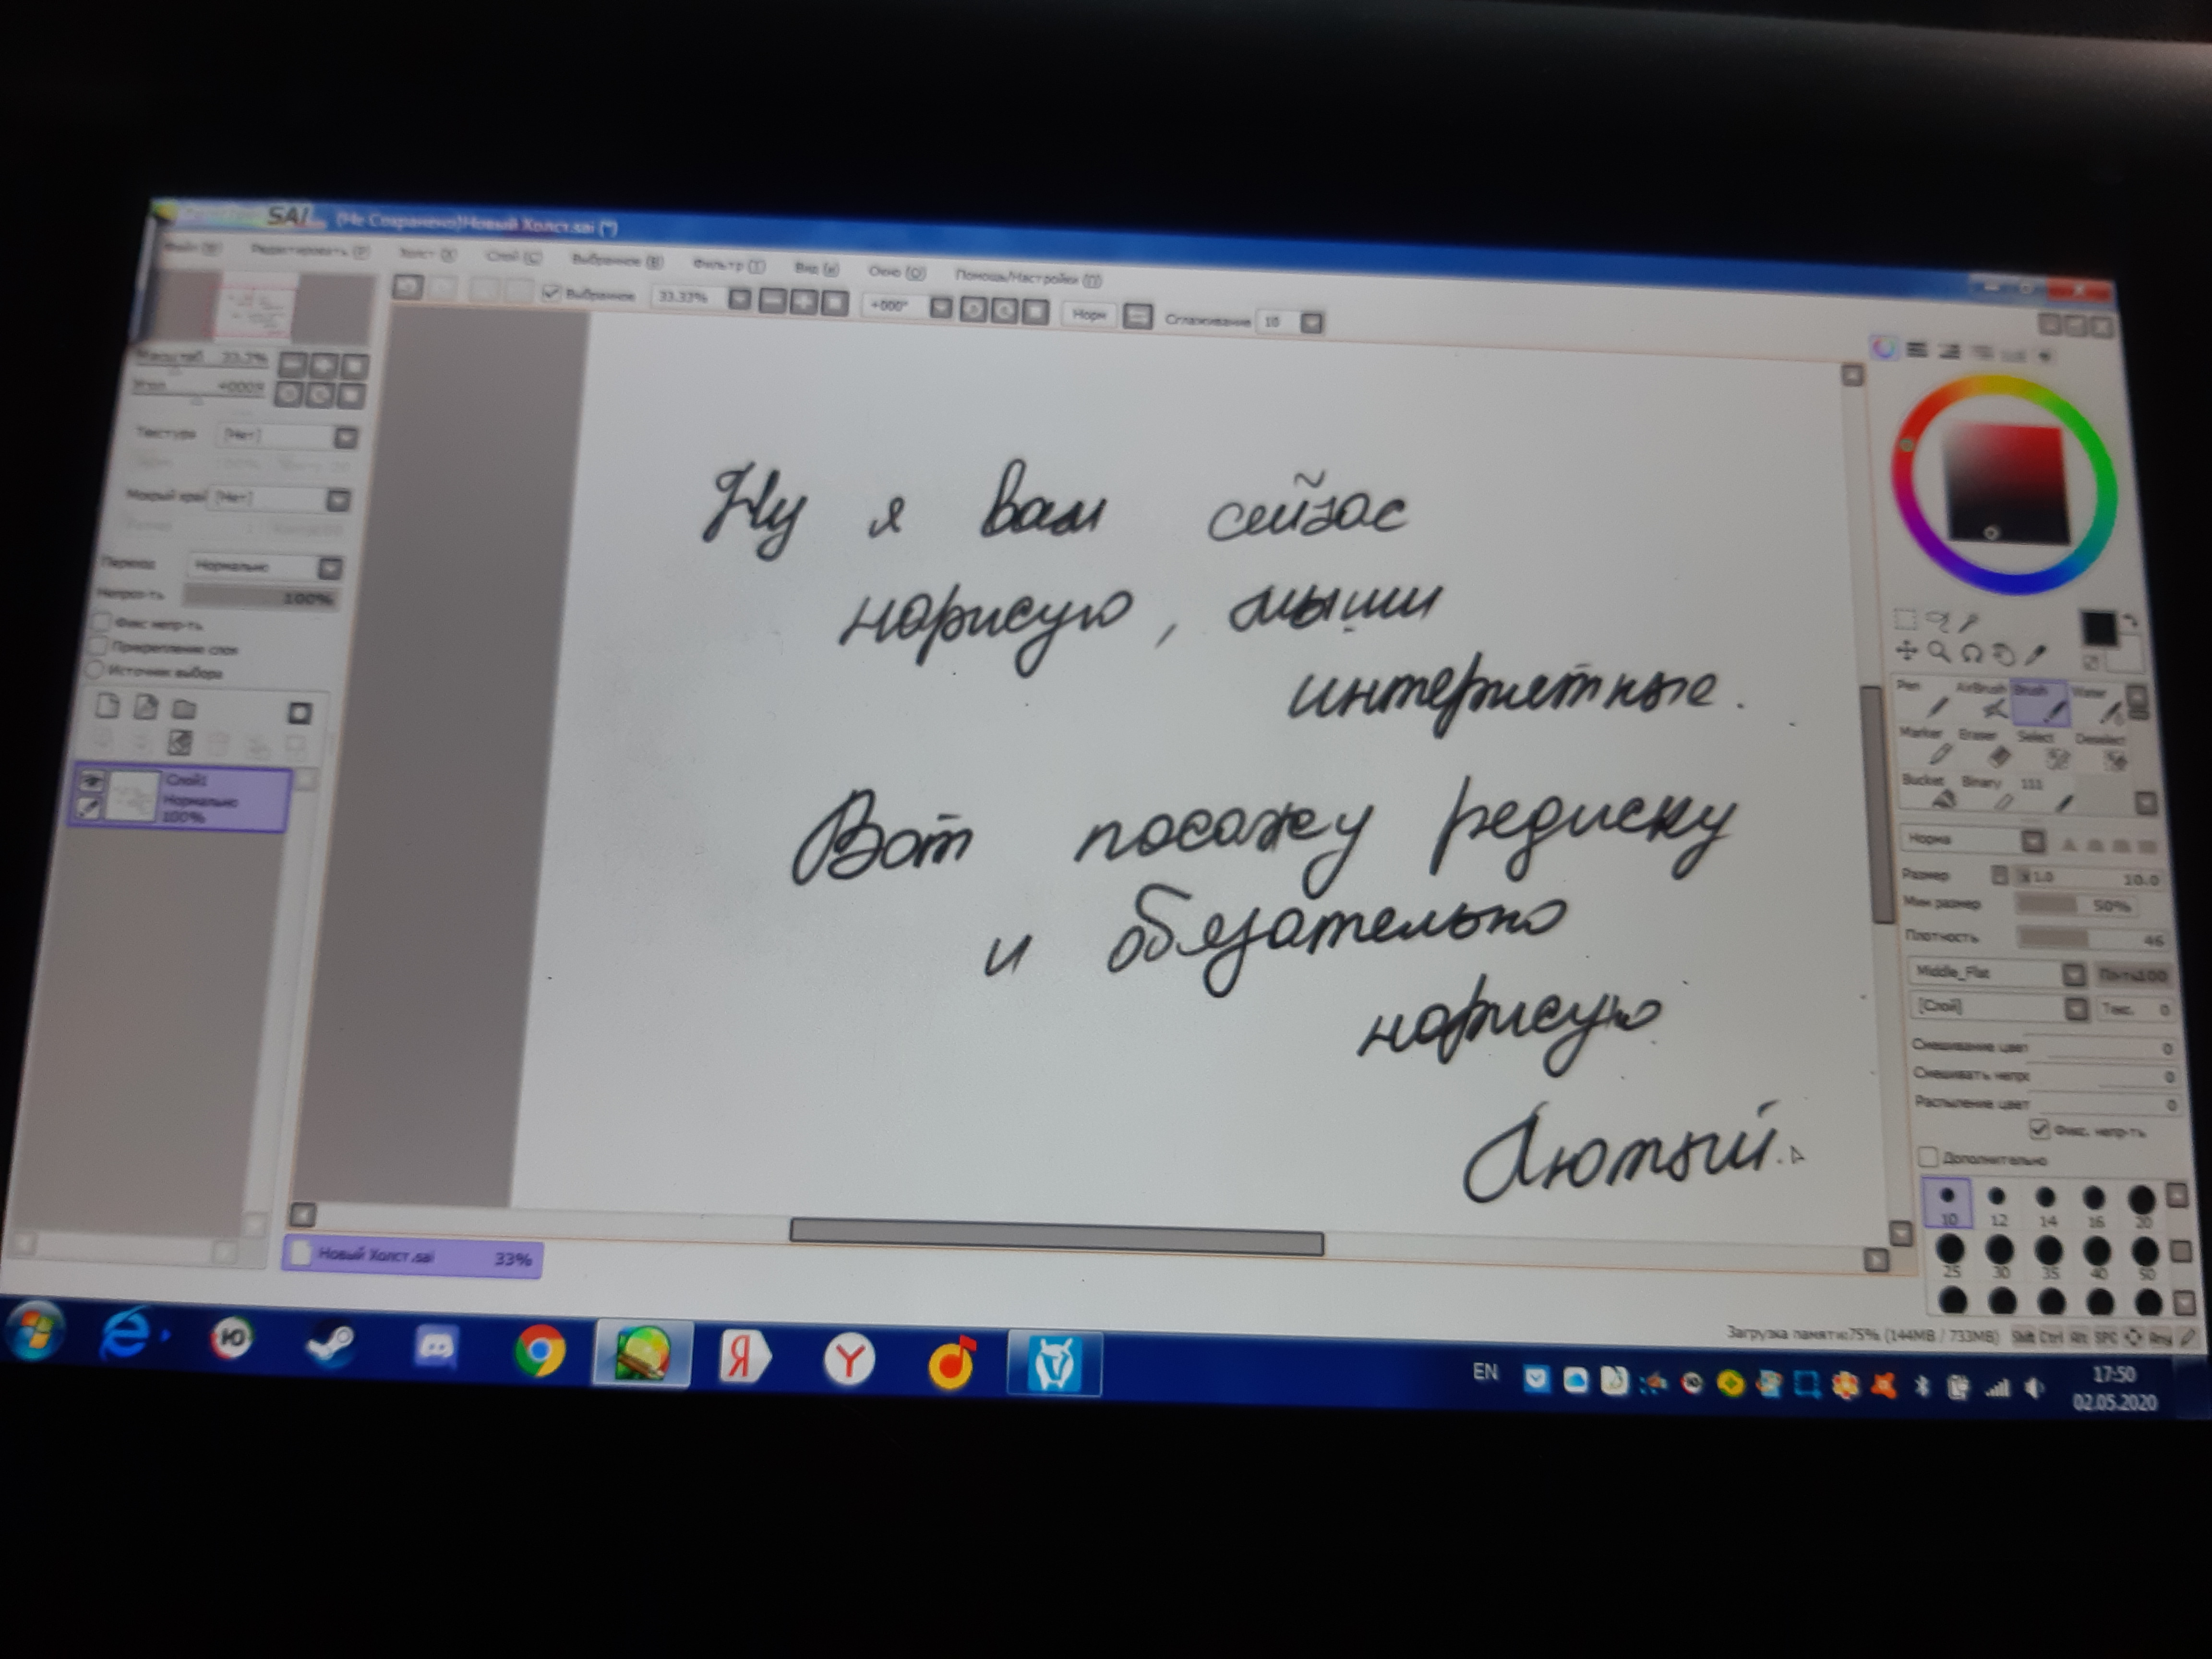 SAI (Не Сохранено)Новый Холст.sai (*)
Файл Редактировать Холст Слой (С) Выбранное (В) Фильтр Вид Окно (О) Помощь/Настройки
Выбранное 33.33% +000° Норм Сглаживание 10
Масштаб 33.3%
Угол
Текстура [Нет]
Мокрый край [Нет]
Переход Нормально
Непроз-ть 100%
Фикс непр-ть
Прикрепление слоя
Источник выбора
Слой1
Нормально
100%
Ну я вам сейчас
нарисую, мыши
интернетные.
Вот посажу редиску
и обязательно
нарисую
Лютый.
Pen AirBrush Brush Water
Marker Eraser Select Deselect
Bucket Binary 111
Норма
Размер x1.0 10.0
Мин размер 50%
Плотность 46
Middle_Flat 100
[Слой] Текс. 0
Смешивание цвет 0
Смешивать непр 0
Распыление цвет 0
Фикс. непр-ть
Дополнительно
10 12 14 16 20
25 30 35 40 50
Новый Холст.sai 33%
Загрузка памяти:75% (144MB / 733MB) Shift Ctrl Alt SPC Any
EN 17:50
02.05.2020